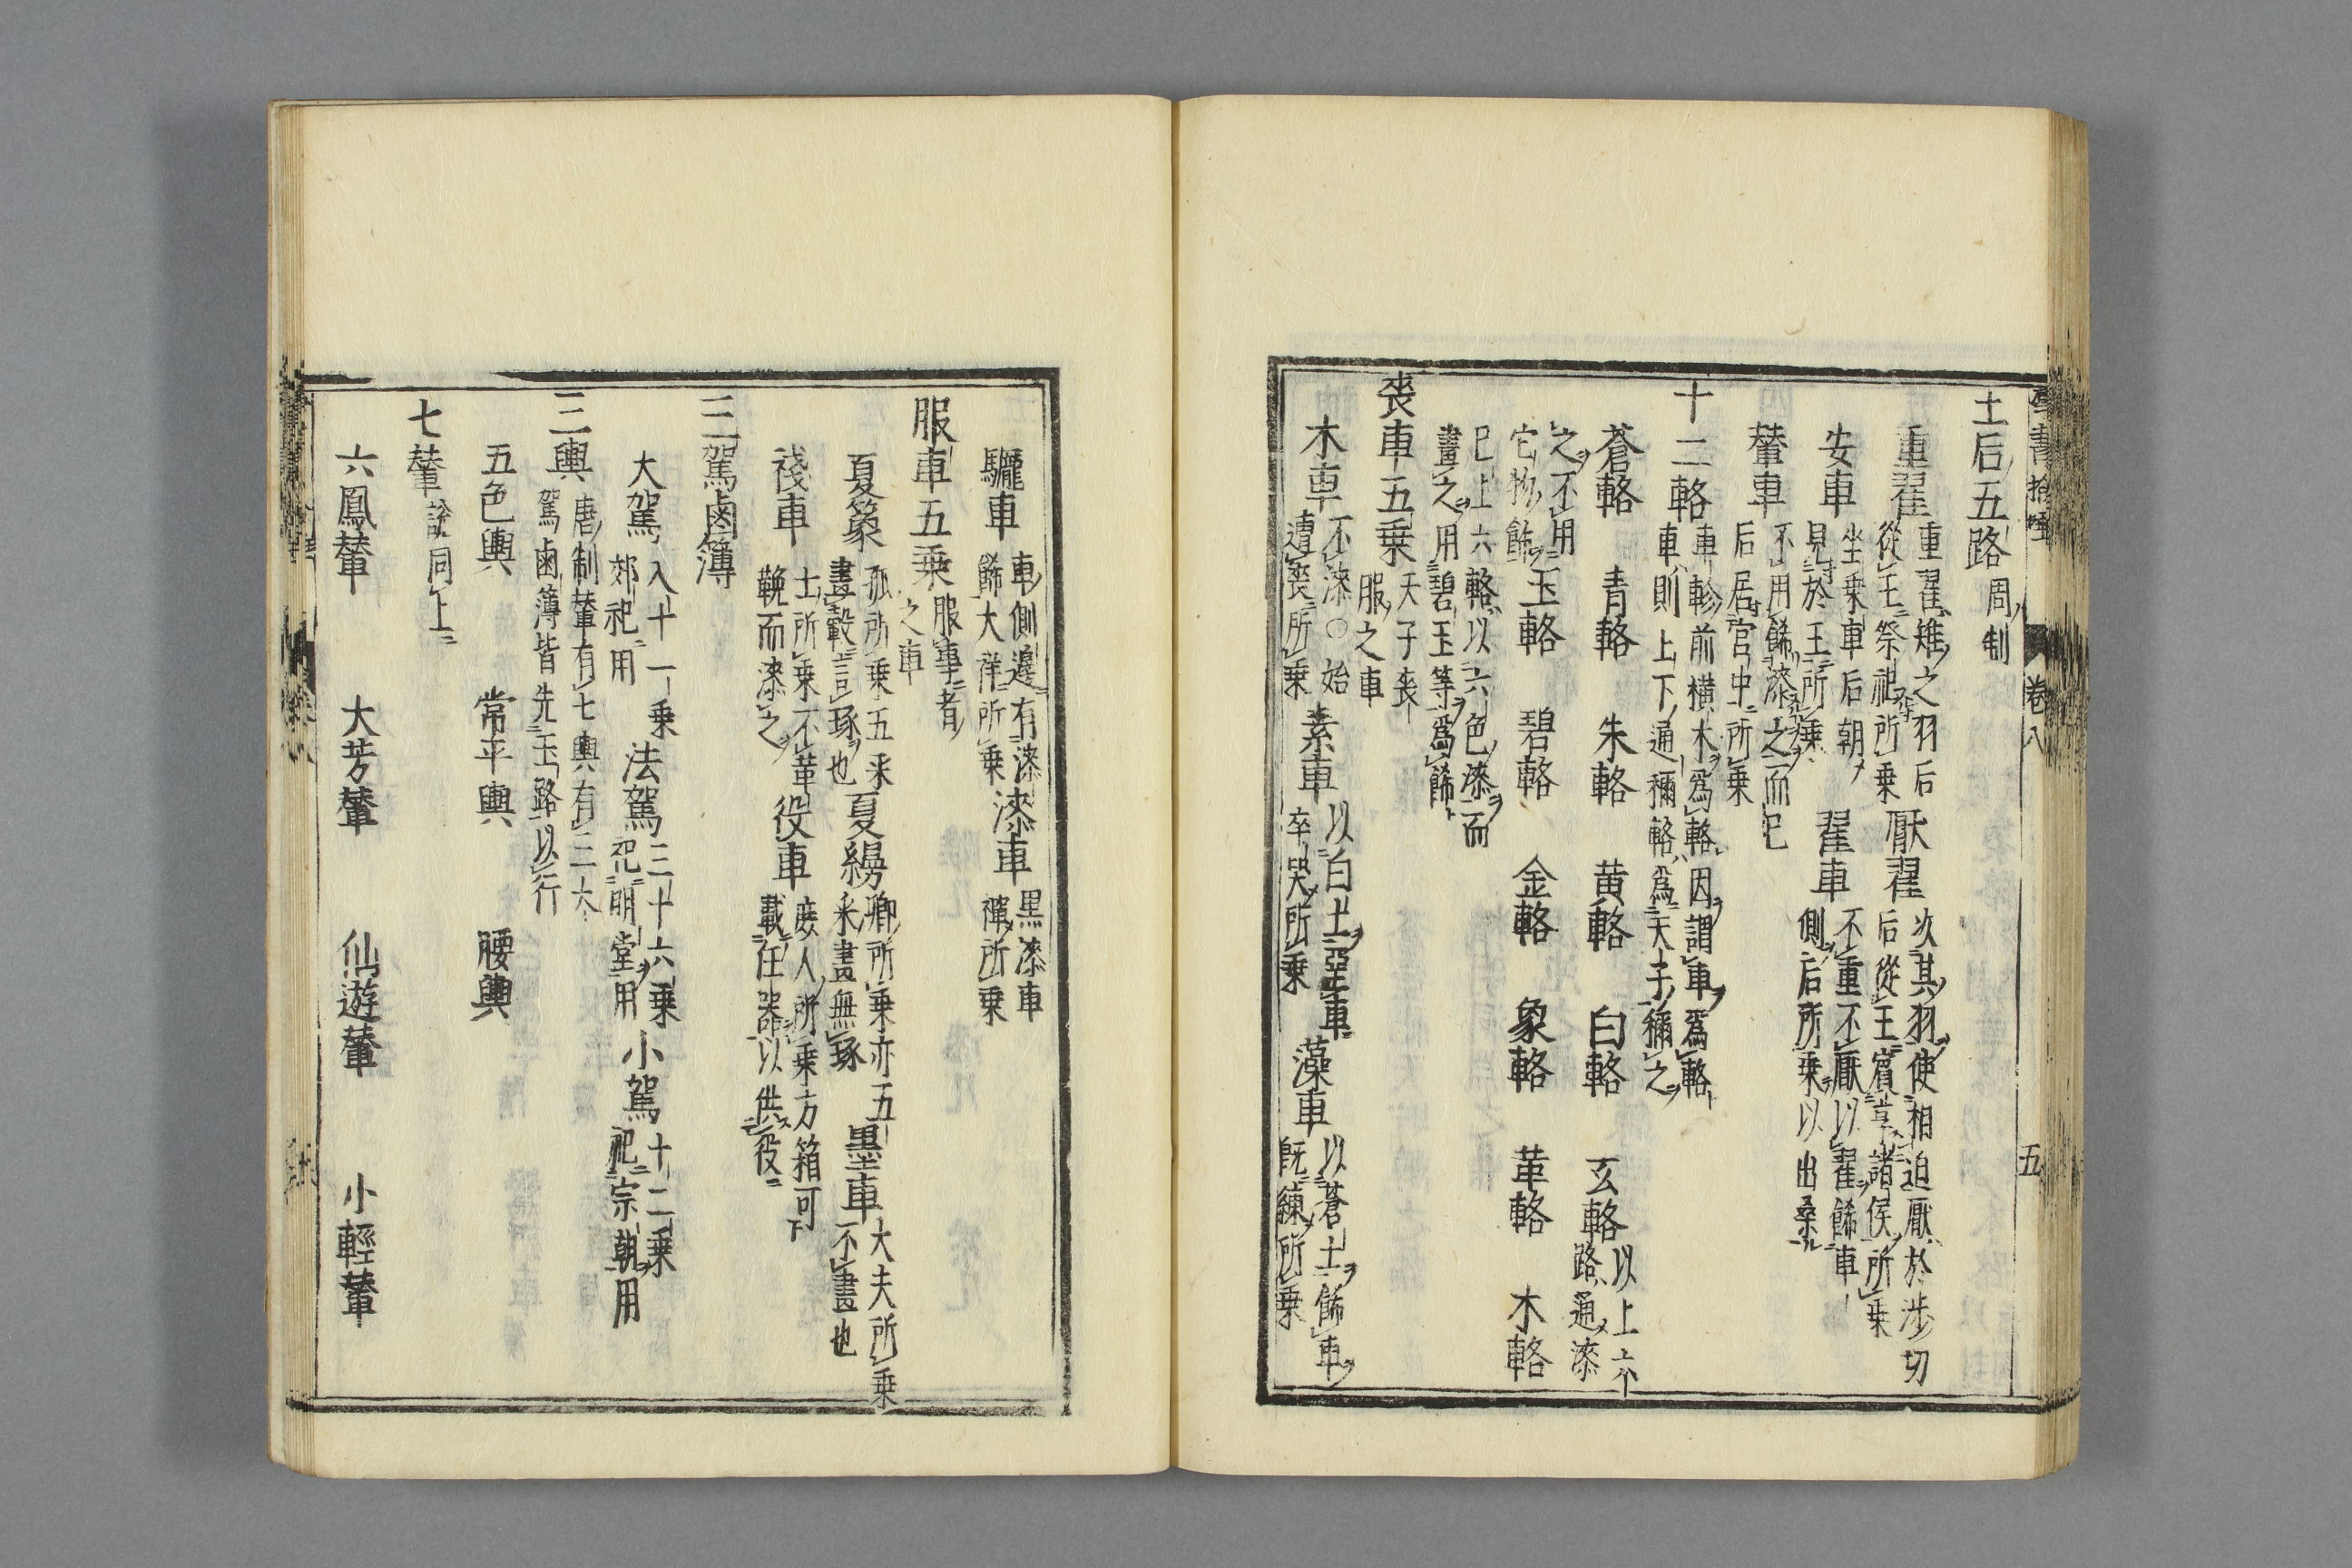 卷八
五
王后五路周制
重翟重翟雉之羽后
從王祭祀所乗
厭翟次其羽使相迫厭於渉切
后從王賓享諸侯所乗
安車坐乗車后朝
見於王所乗
翟車不重不厭以翟餙車
側后所乗以出桑
輦車不用餙漆之而已
后居宮中所乗
十二輅車軫前横木爲輅因謂車爲輅
車則上下通稱輅爲天子稱之
蒼輅 青輅 朱輅 黄輅 白輅 玄輅以上六
路通漆
之不用
它物餙
玉輅 碧輅 金輅 象輅 革輅 木輅
已上六輅以六色漆而
畫之用碧玉等爲餙
喪車五乗天子喪
服之車
木車不漆○始
遭喪所乗
素車以白土堊車
卒哭所乗
藻車以蒼土餙車
既練所乗
駹車車側邊有漆
餙大祥所乗
漆車黒漆車
禫所乗
服車五乗服事者
之車
夏篆孤所乗五采
畫轂言琢也
夏縵卿所乗亦五
采畫無琢
墨車大夫所乗
不畫也
棧車士所乗不革
鞔而漆之
役車庶人所乗方箱可
載任器以供役
三駕鹵簿
大駕八十一乗
郊祀用
法駕三十六乗
祀明堂用
小駕十二乗
祀宗朝用
三輿唐制輦有七輿有三大
駕鹵簿皆先玉路以行
五色輿 常平輿 腰輿
七輦説同上
六鳳輦 大芳輦 仙遊輦 小輕輦